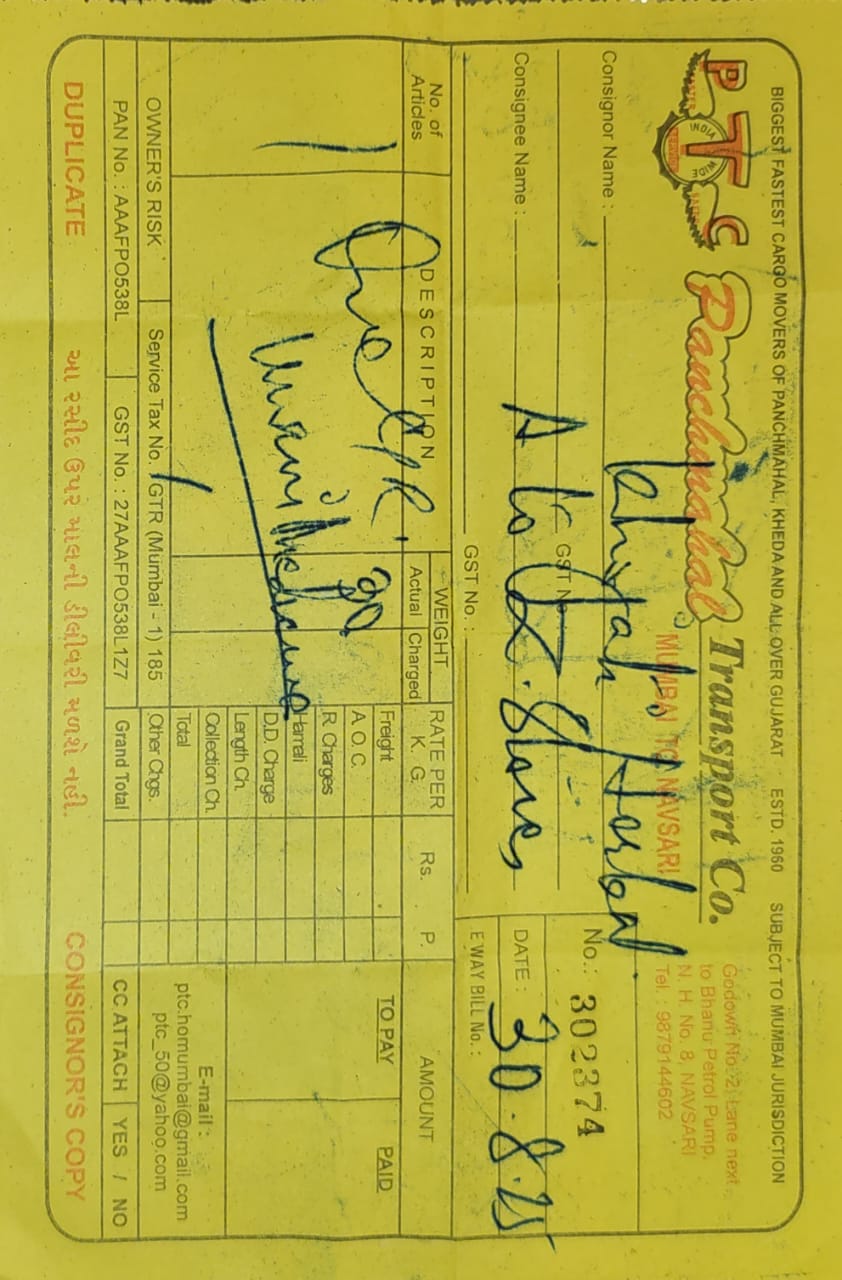 BIGGEST FASTEST CARGO MOVERS OF PANCHMAHAL, KHEDA AND ALL OVER GUJARAT ESTD. 1960 SUBJECT TO MUMBAI JURISDICTION
PTC
INDIA WIDE
Panchmahal Transport Co.
MUMBAI TO NAVSARI
Godown No. 2, Lane next
to Bhanu Petrol Pump,
N. H. No. 8, NAVSARI
Tel.: 9879144602
Consignor Name : Herbal
GST No.
No.: 302374
Consignee Name : A to Z. Stores
DATE : 30.8.25
GST No. :
E WAY BILL No. :
No. of Articles
DESCRIPTION
WEIGHT
Actual Charged
RATE PER K. G.
Rs. P.
AMOUNT
TO PAY PAID
1
One
Medicine
20
Freight
A.O.C.
R. Charges
Hamali
D.D. Charge
Length Ch.
Collection Ch.
Total
Other Chgs.
Grand Total
E-mail :
ptc.homumbai@gmail.com
ptc_50@yahoo.com
OWNER'S RISK Service Tax No. GTR (Mumbai - 1) 185
PAN No. : AAAFPO538L GST No. : 27AAAFPO538L1Z7
CC ATTACH YES / NO
DUPLICATE આ રસીદ ઉપર માલની ડીલીવરી મળશે નહી. CONSIGNOR'S COPY